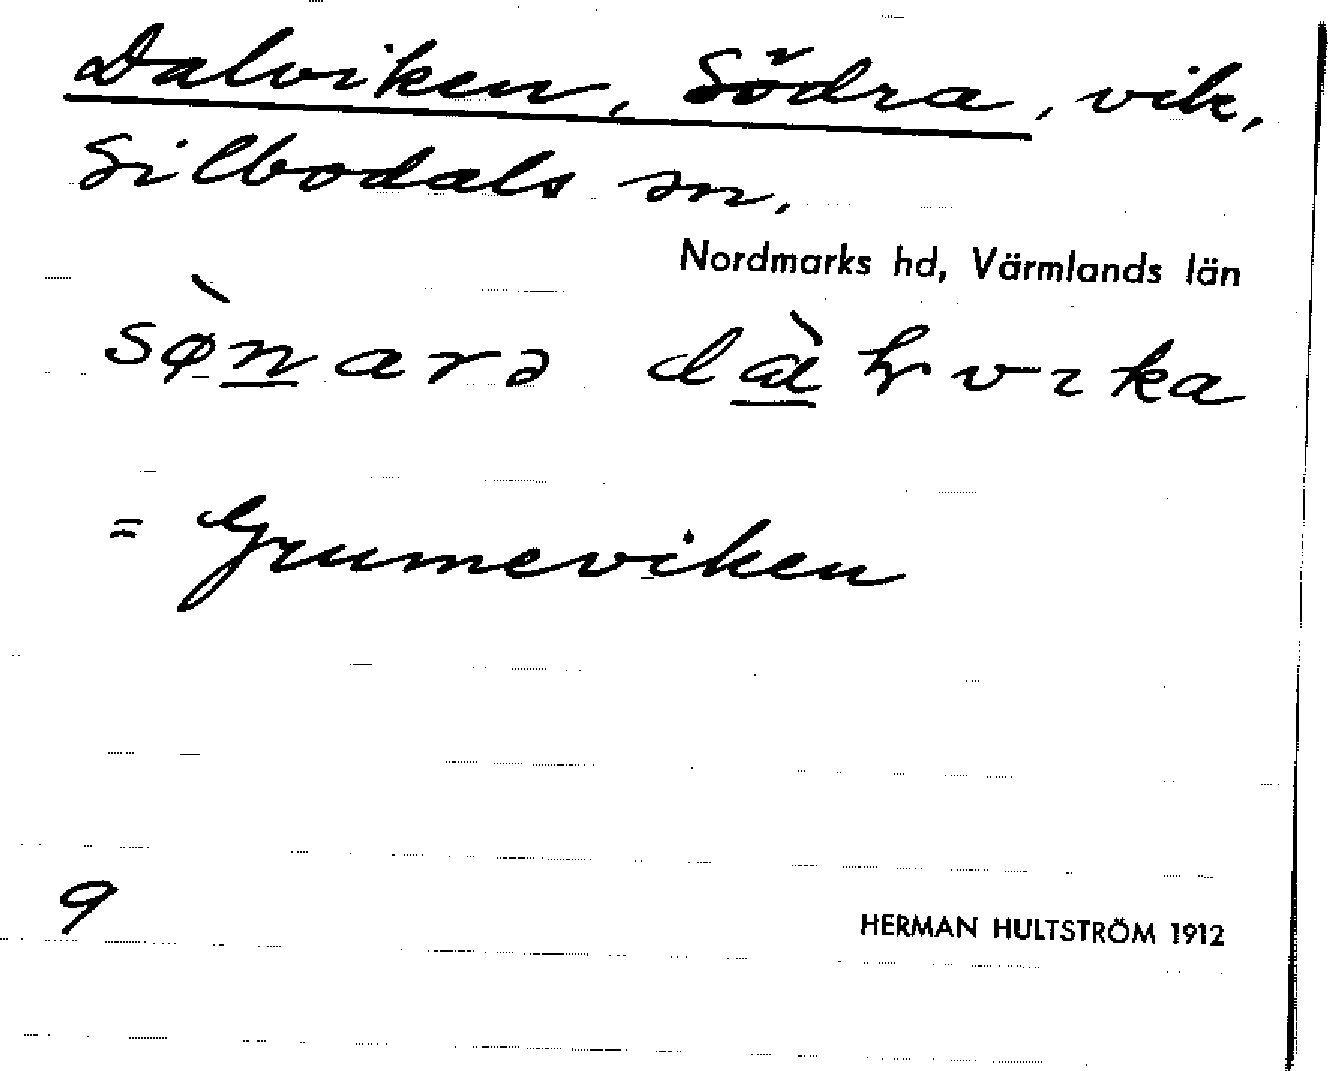 Dalviken, Södra, vik,
Silbodals sn.
Nordmarks hd, Värmlands län
= Grumeviken
9
HERMAN HULTSTRÖM 1912